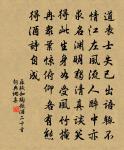 道喪士失己出語輒不
情江左風流人醉中亦
求名淵明獨清真談笑
得此生身如受風竹掩
冉眾葉驚俯仰各有態
得酒詩自成
蘇軾和陶飲酒二十首